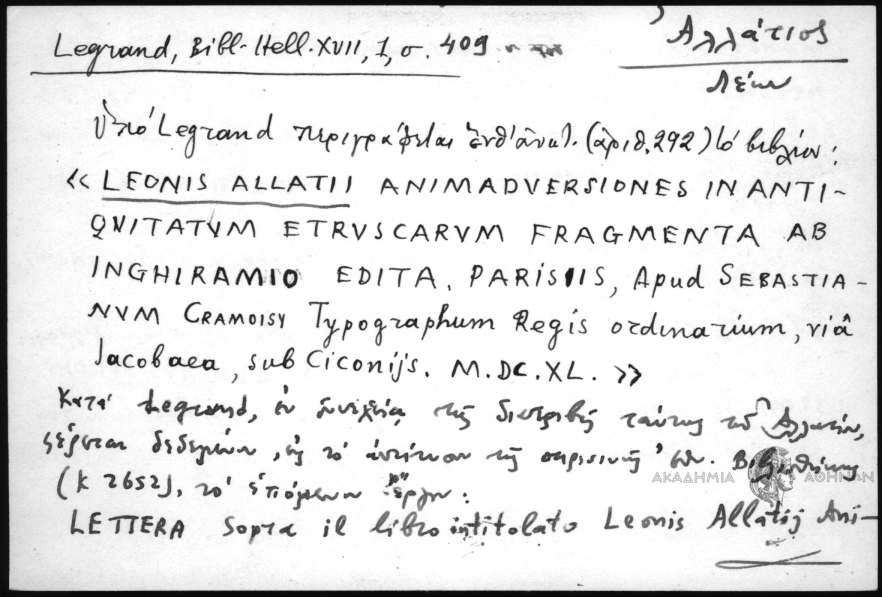 Legrand, Bibl. Hell. XVII, 1, σ. 409
Ἀλλάτιος
Λέων
Ὑπὸ Legrand περιγράφεται ἐνθ' ἀνωτ. (ἀριθ. 292) τὸ βιβλίον:
« LEONIS ALLATII ANIMADVERSIONES IN ANTI-
QVITATVM ETRVSCARVM FRAGMENTA AB
INGHIRAMIO EDITA. PARISIIS, Apud SEBASTIA-
NVM CRAMOISY Typographum Regis ordinarium, viâ
Jacobaea, sub Ciconijs. M.DC.XL. »
Κατὰ Legrand, ἐν συνεχείᾳ τῆς διατριβῆς ταύτης τοῦ Ἀλλατίου,
φέρεται δεδεμένον, εἰς τὸ ἀντίτυπον τῆς παρισινῆς Ἐθν. Βιβλιοθήκης
(K 2652), τὸ ἑπόμενον ἔργον:
LETTERA sopra il libro intitolato Leonis Allatij Ani-
ΑΚΑΔΗΜΙΑ ΑΘΗΝΩΝ